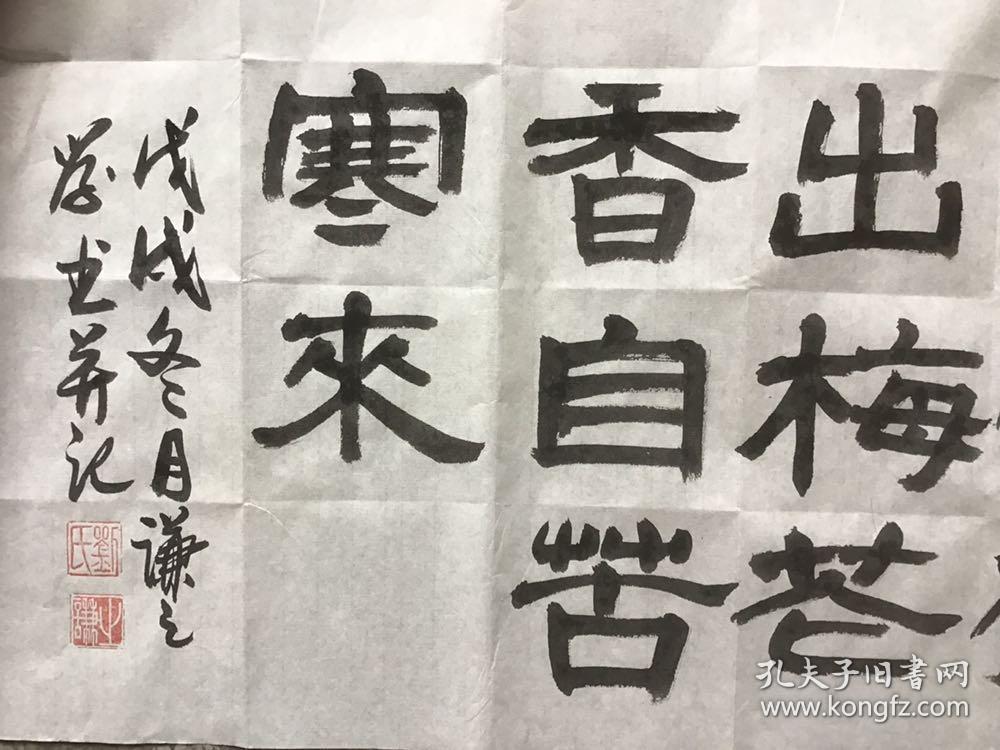 出梅花
香自苦
寒來
戊戌冬月謙之
学书并记
劉氏
謙之
孔夫子旧书网
www.kongfz.com